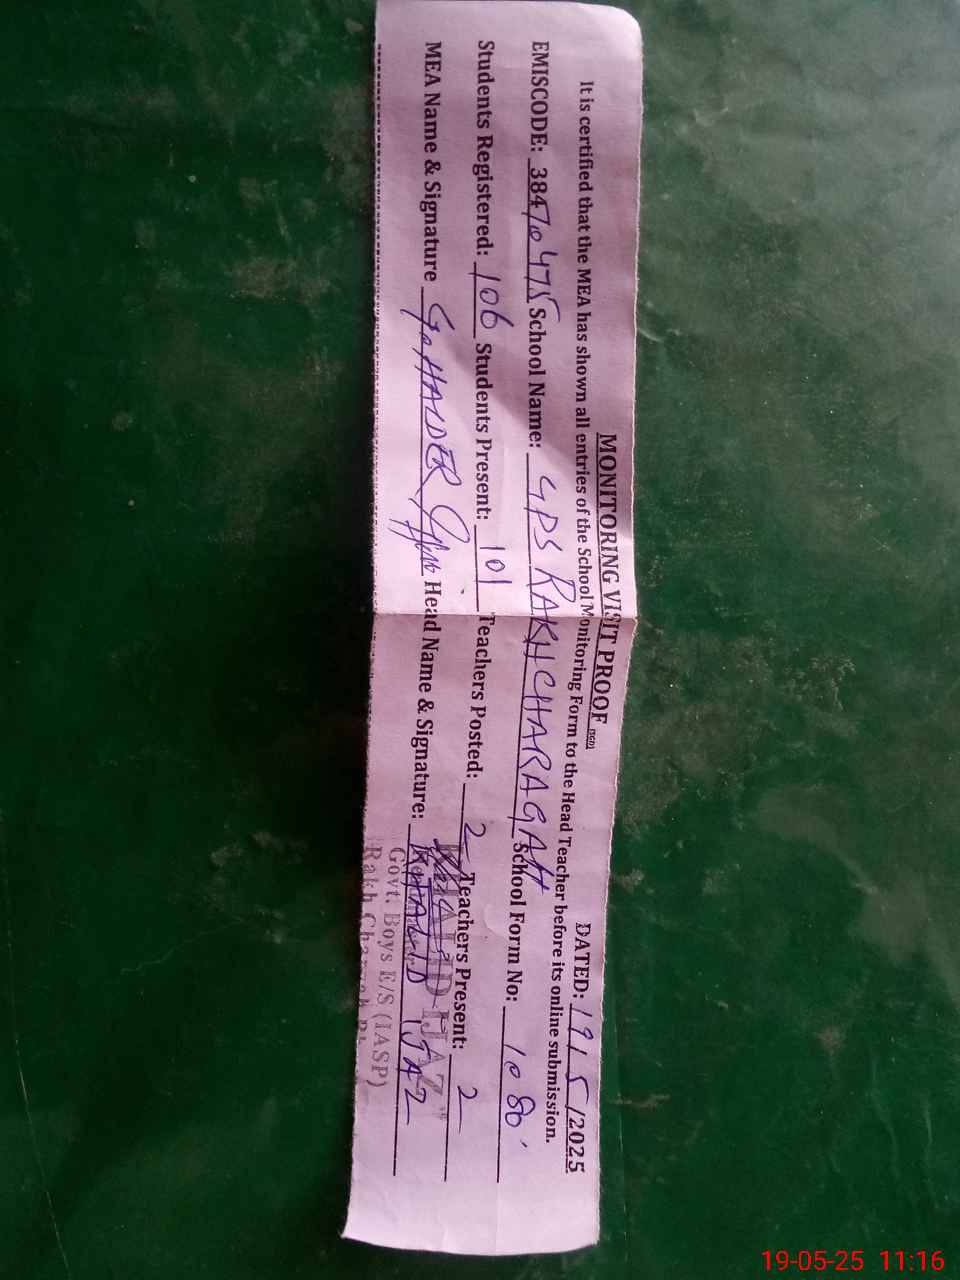 MONITORING VISIT PROOF
DATED: 19/5/2025
It is certified that the MEA has shown all entries of the School Monitoring Form to the Head Teacher before its online submission.
EMISCODE: 38470475 School Name: GPS RAKH CHARAGAH School Form No: 1080
Students Registered: 106 Students Present: 101 Teachers Posted: 2 Teachers Present: 2
MEA Name & Signature G. HAIDER Head Name & Signature: KHALID IJAZ
KHALID IJAZ
Govt. Boys E/S (IASP)
Rakh Charagah
19-05-25 11:16